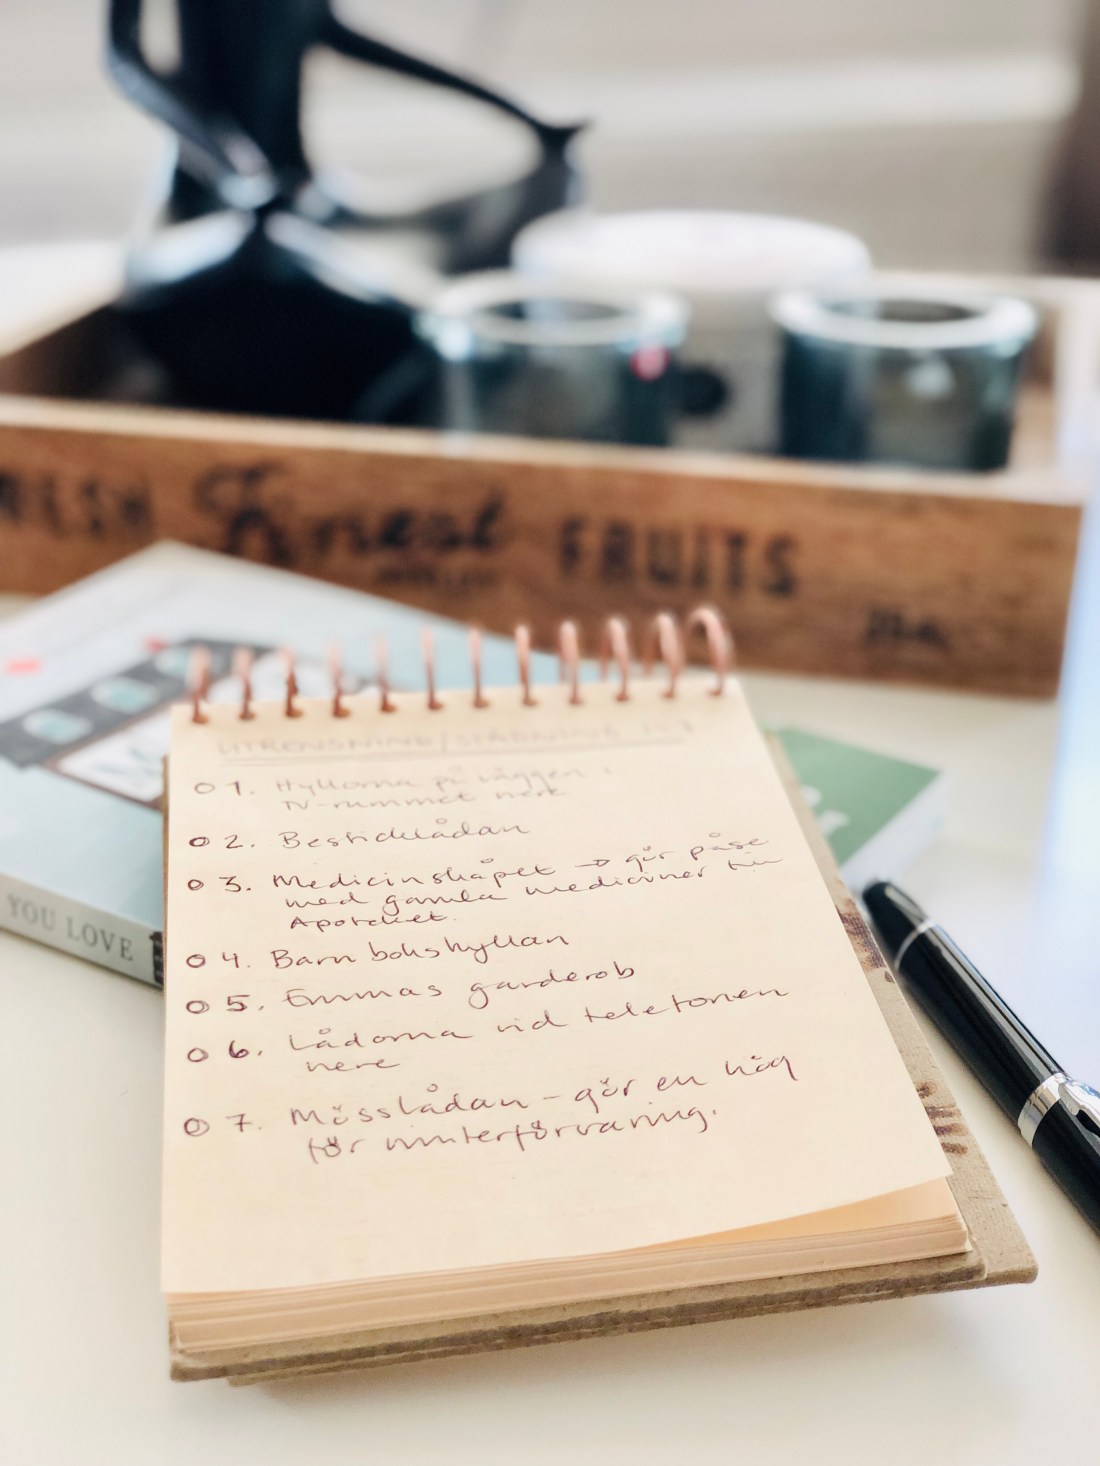 Finest FRUITS
YOU LOVE
UTRENSNING/STÄDNING
1. Hyllorna på väggen i
TV-rummet nere
2. Besticklådan
3. Medicinskåpet → gör påse
med gamla mediciner till
Apoteket.
4. Barnbokshyllan
5. Emmas garderob
6. Lådorna vid telefonen
nere
7. Mösslådan - gör en hög
för vinterförvaring.